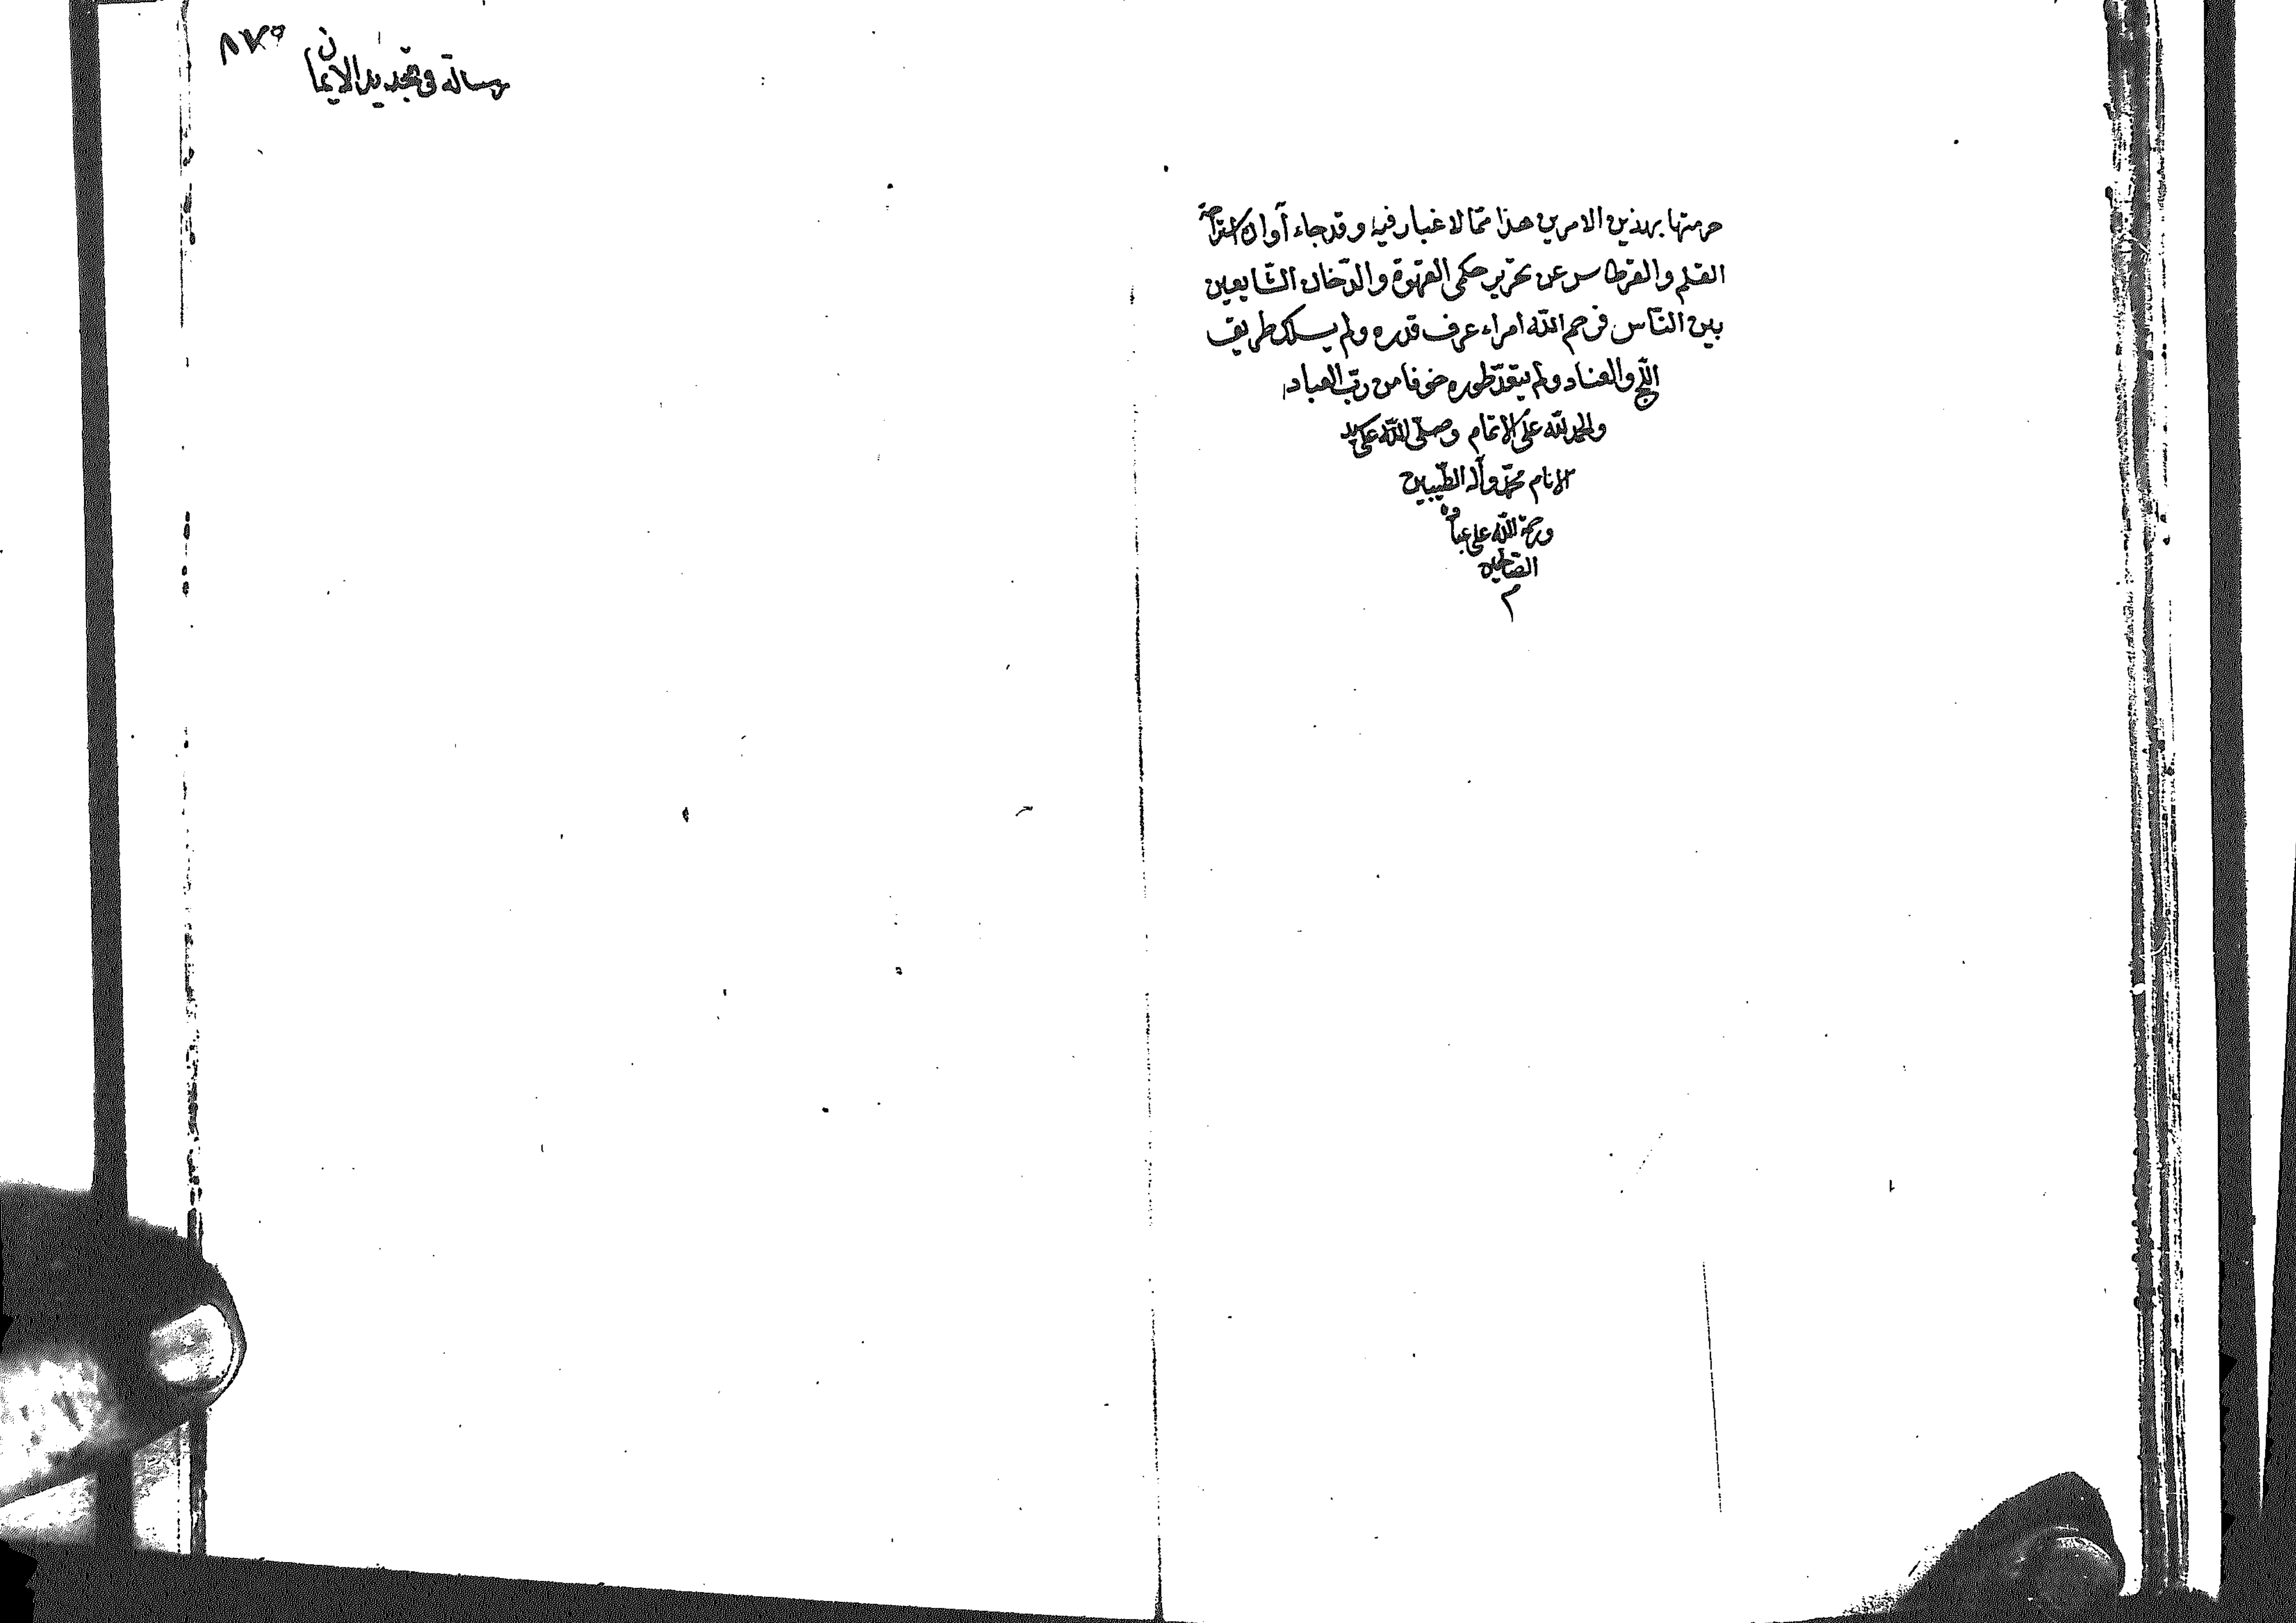 حرمتها بهذين الامرين هذا ممّا لا غبار فيه وقد جاء آوان استراحة
القلم والقرطاس عن تحرير حكمى القهوة والدّخان الشّايعين
بين النّاس فرحم الله امراء عرف قدره ولم يسلك طريق
اللّجّ والعناد ولم يتعدّ طوره خوفا من ربّ العباد
والحمد لله على الاتمام وصلّى الله على سيد
الانام محمّد وآله الطّيّبين
ورحمة الله على عباده
الصّالحين
م
رسالة فى تجديد الايمان